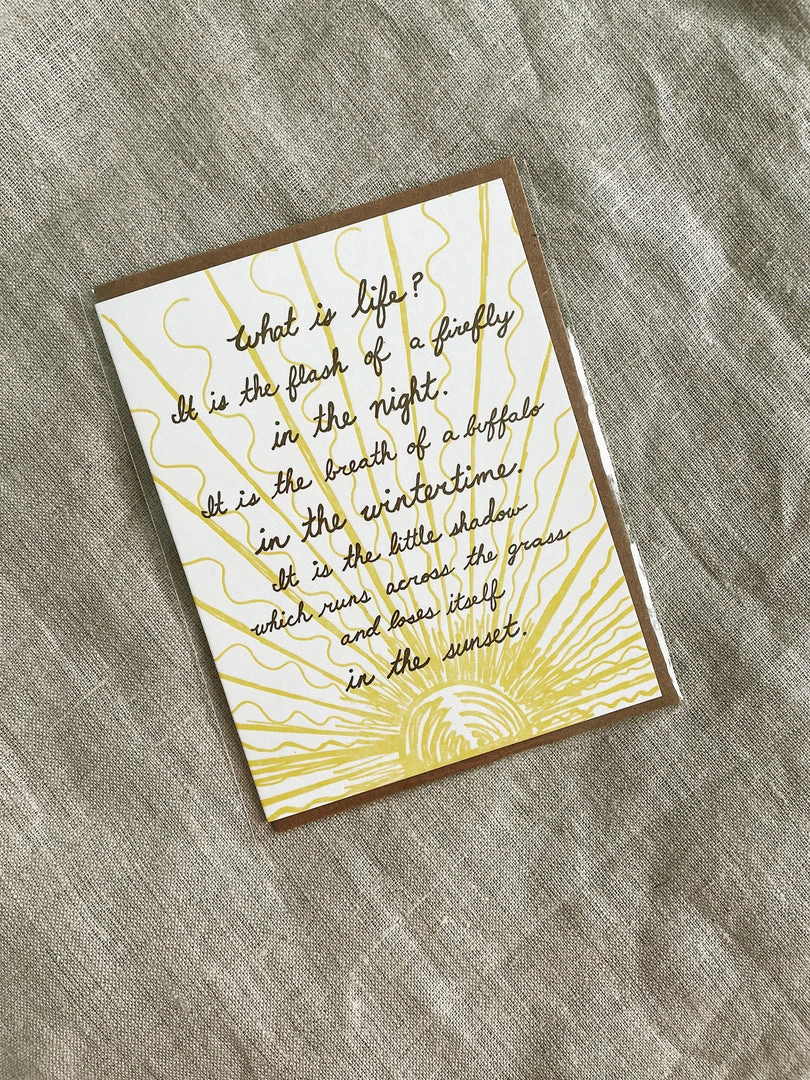 What is life?
It is the flash of a firefly
in the night.
It is the breath of a buffalo
in the wintertime.
It is the little shadow
which runs across the grass
and loses itself
in the sunset.